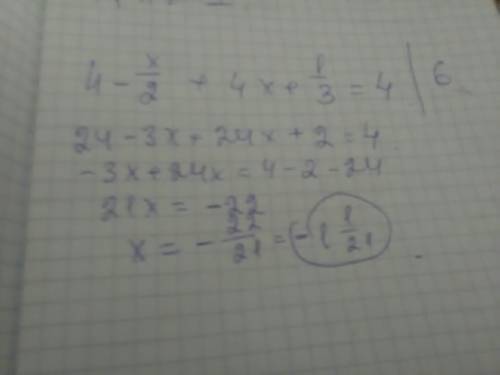 4 - x/2 + 4x + 1/3 = 4 | 6
24 - 3x + 24x + 2 = 4
-3x + 24x = 4 - 2 - 24
21x = -22
x = - 22/21 = -1 1/21